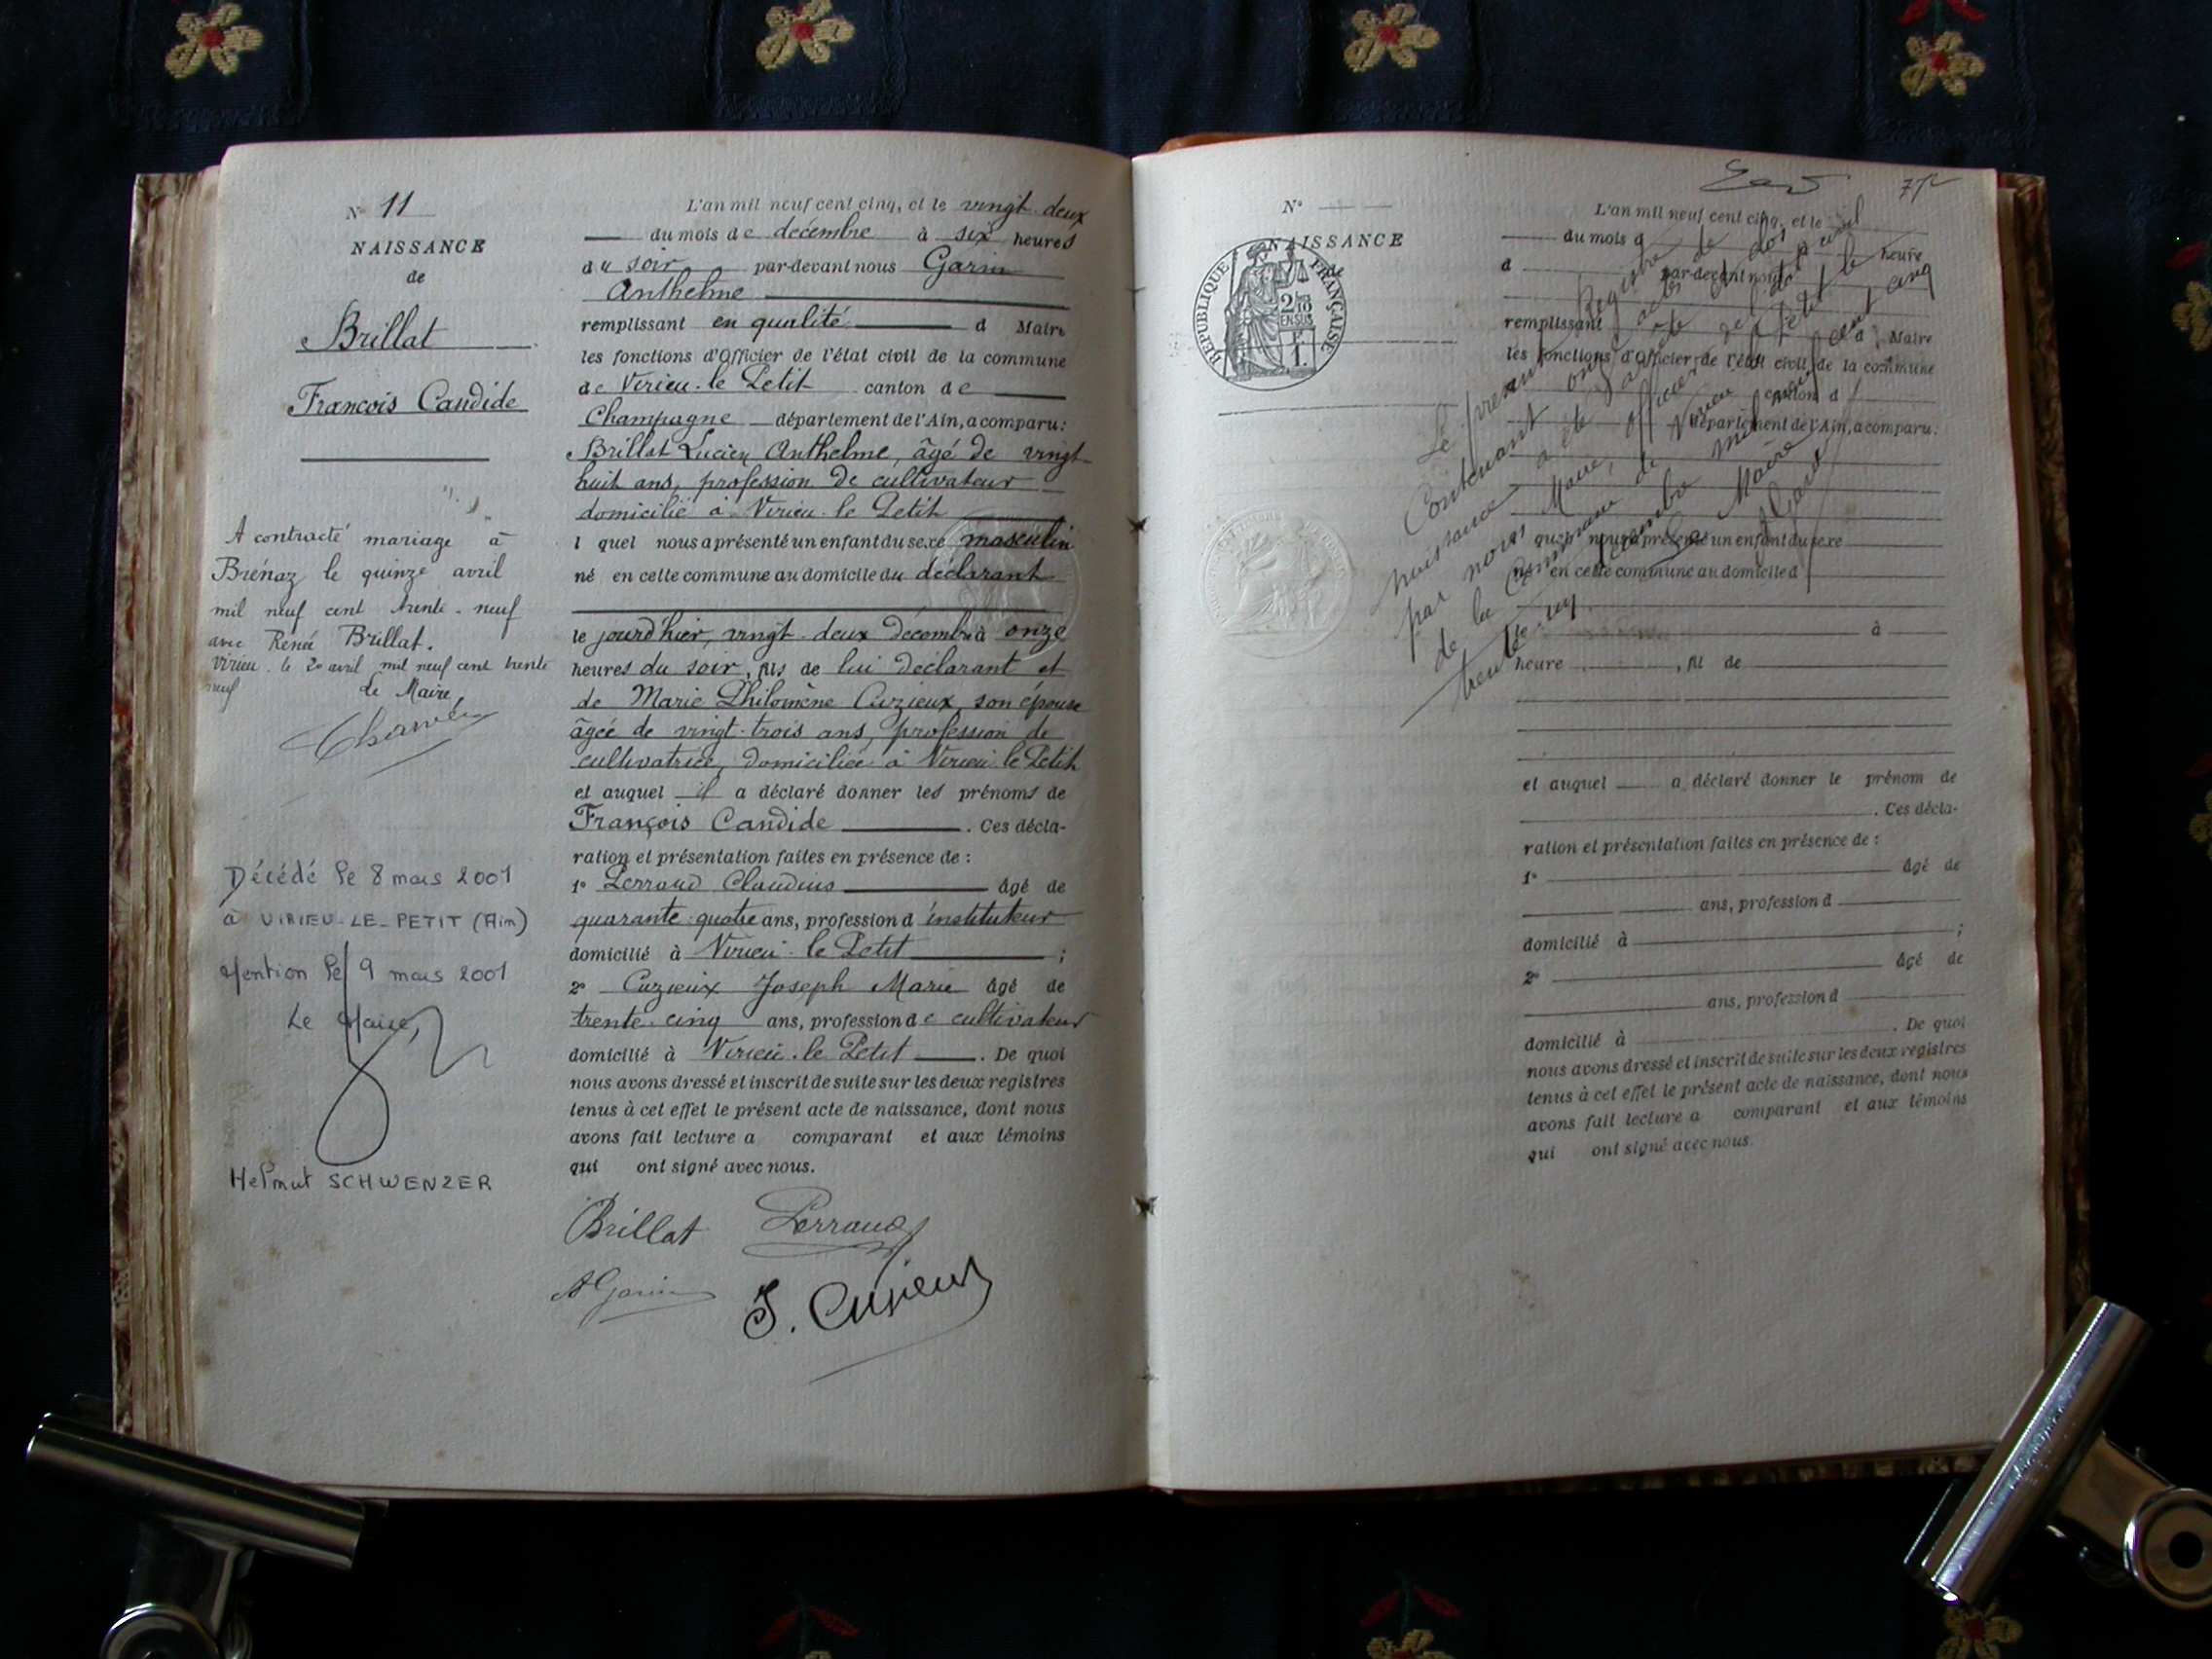 N° 11
NAISSANCE
de
Brillat
François Candide
A contracté mariage à
Brénaz le quinze avril
mil neuf cent trente-neuf
avec Renée Brillat.
Virieu le 20 avril mil neuf cent trente
neuf
Le Maire,
Décédé le 8 mars 2001
à VIRIEU-LE-PETIT (Ain)
Mention le 9 mars 2001
Le Maire,
Helmut SCHWENZER
L'an mil neuf cent cinq, et le vingt-deux
du mois de décembre à six heures
du soir par-devant nous Garin
Anthelme
remplissant en qualité d Maire
les fonctions d'Officier de l'état civil de la commune
de Virieu-le-Petit canton de
Champagne département de l'Ain, a comparu:
Brillat Lucien Anthelme, âgé de vingt-
huit ans, profession de cultivateur
domicilié à Virieu-le-Petit
l quel nous a présenté un enfant du sexe masculin
né en cette commune au domicile du déclarant
le jourd'hier, vingt-deux décembre à onze
heures du soir, fils de lui déclarant et
de Marie Philomène Cuzieux, son épouse
âgée de vingt-trois ans, profession de
cultivatrice, domiciliée à Virieu-le-Petit
et auquel il a déclaré donner les prénoms de
François Candide . Ces décla-
ration et présentation faites en présence de :
1° Perraud Claudius âgé de
quarante-quatre ans, profession d instituteur
domicilié à Virieu-le-Petit ;
2° Cuzieux Joseph Marie âgé de
trente-cinq ans, profession de cultivateur
domicilié à Virieu-le-Petit . De quoi
nous avons dressé et inscrit de suite sur les deux registres
tenus à cet effet le présent acte de naissance, dont nous
avons fait lecture a comparant et aux témoins
qui ont signé avec nous.
Brillat Perraud
A Garin
J. Cuzieux
N°
NAISSANCE
de
RÉPUBLIQUE FRANÇAISE
2/10
EN SUS
L'an mil neuf cent cinq, et le
du mois d heure
d par-devant nous
remplissant d Maire
les fonctions d'Officier de l'état civil de la commune
canton d
département de l'Ain, a comparu:
quel nous a présenté un enfant du sexe
né en cette commune au domicile d
à
heure , fil de
et auquel a déclaré donner le prénom de
. Ces décla-
ration et présentation faites en présence de :
1° âgé de
ans, profession d
domicilié à ;
2° âgé de
ans, profession d
domicilié à . De quoi
nous avons dressé et inscrit de suite sur les deux registres
tenus à cet effet le présent acte de naissance, dont nous
avons fait lecture a comparant et aux témoins
qui ont signé avec nous.
Le présent Registre de
Contenant onze actes de
naissance a été
par nous Maire, officier de
de la Commune de Virieu le Petit le
trente-un décembre mil neuf cent cinq
Le Maire